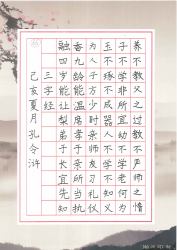 养不教父之过教不严师之惰
子不学非所宜幼不学老何为
玉不琢不成器人不学不知义
为人子方少时亲师友习礼仪
香九龄能温席孝于亲所当执
融四岁能让梨弟于长宜先知
三字经
己亥夏月孔令浒